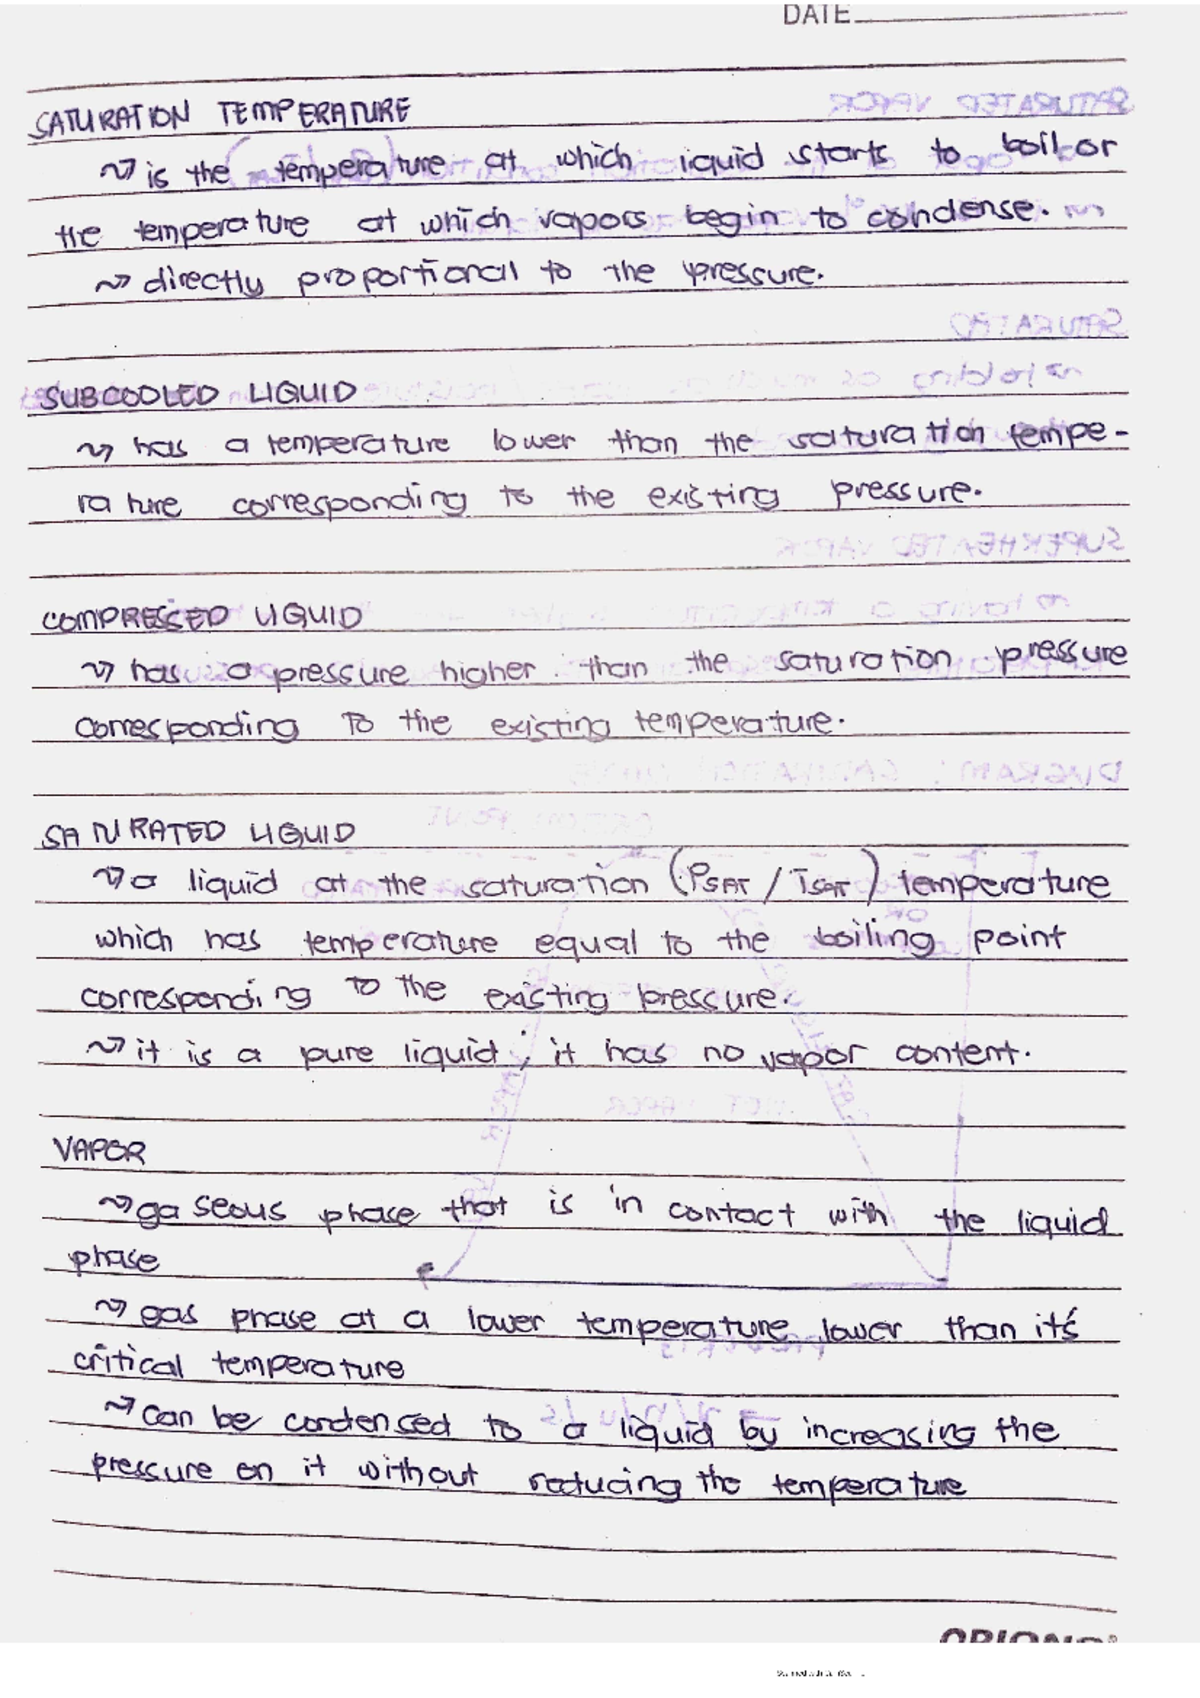 DATE
SATURATION TEMPERATURE
~> is the temperature at which liquid starts to boil or
the temperature at which vapors begin to condense.
~> directly proportional to the pressure.
SUBCOOLED LIQUID
~> has a temperature lower than the saturation tempe-
rature corresponding to the existing pressure.
COMPRESSED LIQUID
~> has a pressure higher than the saturation pressure
corresponding to the existing temperature.
SATURATED LIQUID
~> a liquid at the saturation (PSAT / TSAT) temperature
which has temperature equal to the boiling point
corresponding to the existing pressure.
~> it is a pure liquid; it has no vapor content.
VAPOR
~> gaseous phase that is in contact with the liquid
phase
~> gas phase at a lower temperature lower than it's
critical temperature
~> can be condensed to a liquid by increasing the
pressure on it without reducing the temperature